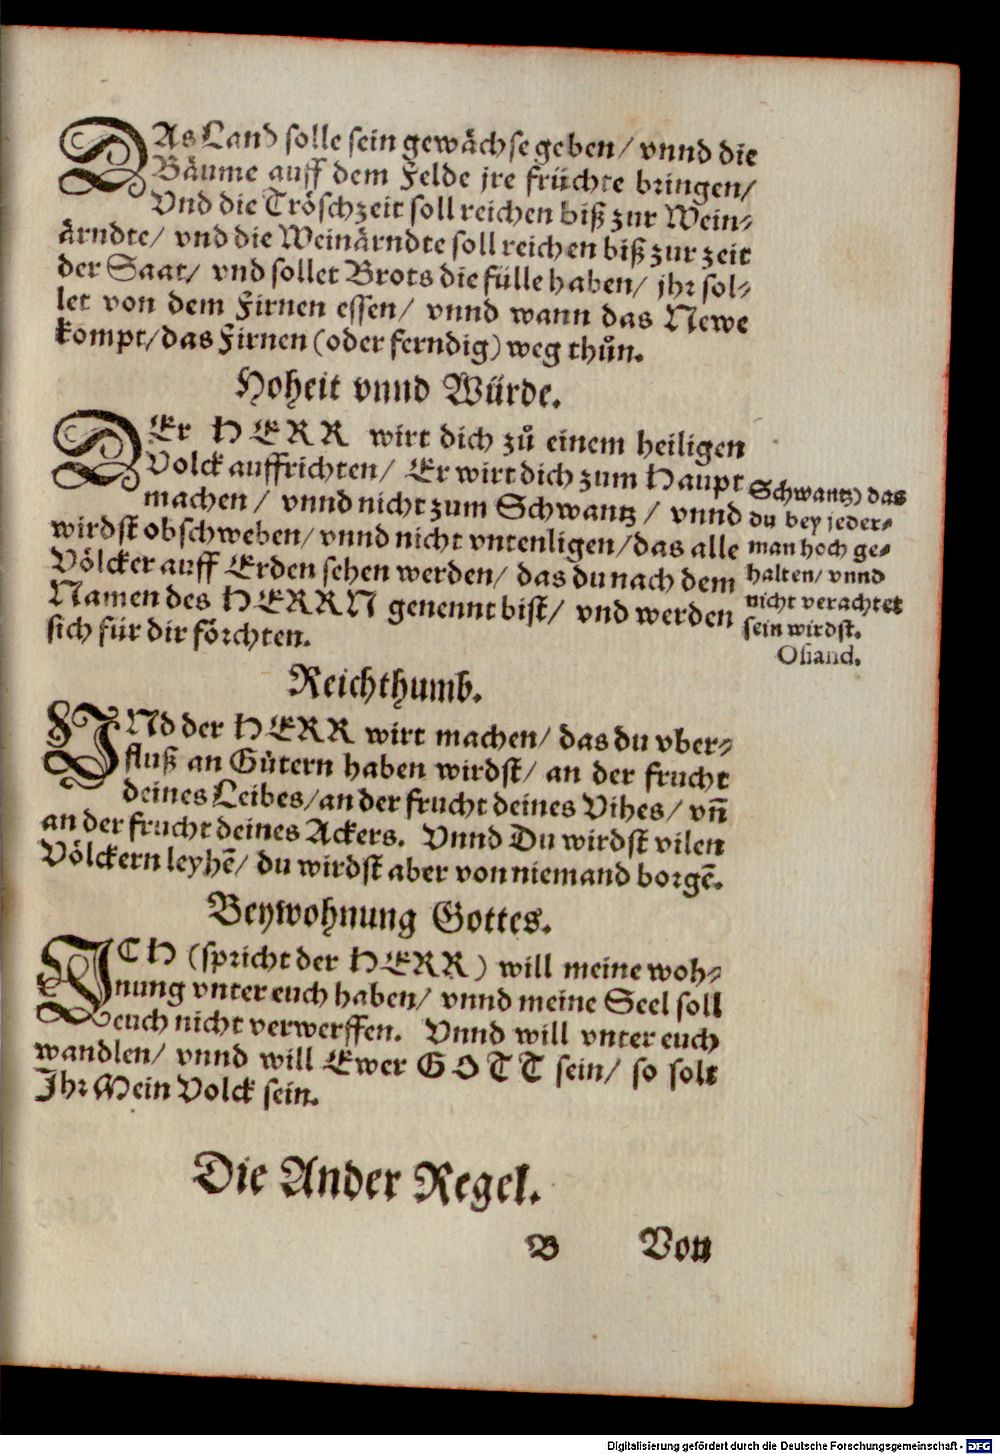 DAs Land solle sein gewächse geben/ vnnd die
Bäume auff dem Felde jre früchte bringen/
Vnd die Tröschzeit soll reichen biß zur Wein-
ärndte/ vnd die Weinärndte soll reichen biß zur zeit
der Saat/ vnd sollet Brots die fülle haben/ jhr sol-
let von dem Firnen essen/ vnnd wann das Newe
kompt/ das Firnen (oder ferndig) weg thůn.
Hoheit vnnd Würde.
DEr HERR wirt dich zů einem heiligen
Volck auffrichten/ Er wirt dich zum Haupt
machen/ vnnd nicht zum Schwantz/ vnnd
wirdst obschweben/ vnnd nicht vntenligen/ das alle
Völcker auff Erden sehen werden/ das du nach dem
Namen des HERRN genennt bist/ vnd werden
sich für dir förchten.
Schwantz) das
du bey jeder-
man hoch ge-
halten/ vnnd
nicht verachtet
sein wirdst.
Osiand.
Reichthumb.
VNd der HERR wirt machen/ das du vber-
fluß an Gütern haben wirdst/ an der frucht
deines Leibes/ an der frucht deines Vihes/ vn̄
an der frucht deines Ackers. Vnnd Du wirdst vilen
Völckern leyhē/ du wirdst aber von niemand borgē.
Beywohnung Gottes.
ICH (spricht der HERR) will meine woh-
nung vnter euch haben/ vnnd meine Seel soll
euch nicht verwerffen. Vnnd will vnter euch
wandlen/ vnnd will Ewer GOTT sein/ so solt
Jhr Mein Volck sein.
Die Ander Regel.
B Von
Digitalisierung gefördert durch die Deutsche Forschungsgemeinschaft - DFG